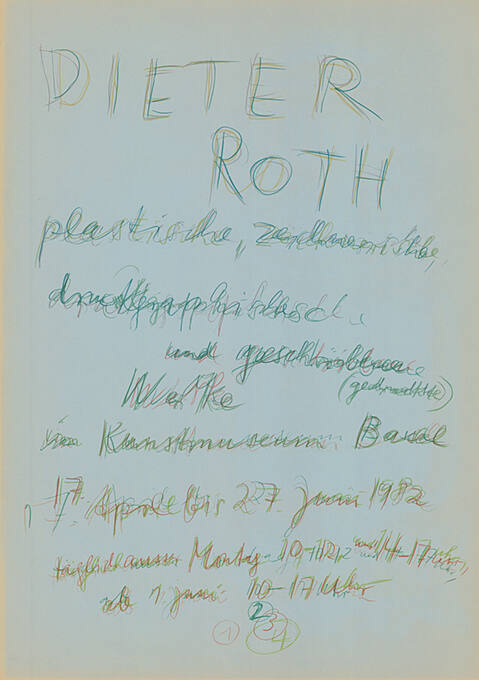 DIETER
ROTH
plastische, zeichnerische,
druckgraphische
und geschriebene
(gedruckte)
Werke
im Kunstmuseum Basel
17. April bis 27. Juni 1982
täglich ausser Montag 10–12 und 14–17 Uhr,
ab 1. Juni 10–17 Uhr
1 2 3 4